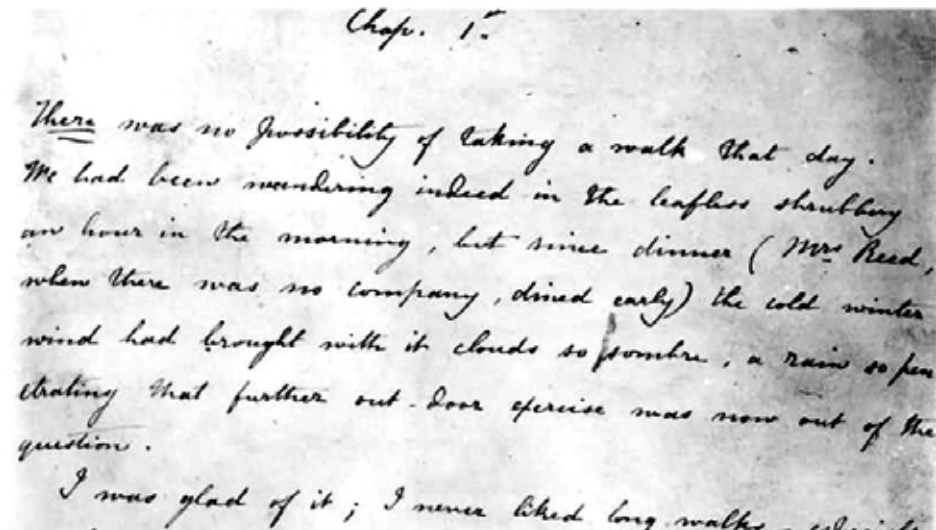 Chap. 1st
There was no possibility of taking a walk that day.
We had been wandering indeed in the leafless shrubbery
an hour in the morning, but since dinner (Mrs Reed,
when there was no company, dined early) the cold winter
wind had brought with it clouds so sombre, a rain so pen
etrating that further out-door exercise was now out of the
question.
I was glad of it; I never liked long walks